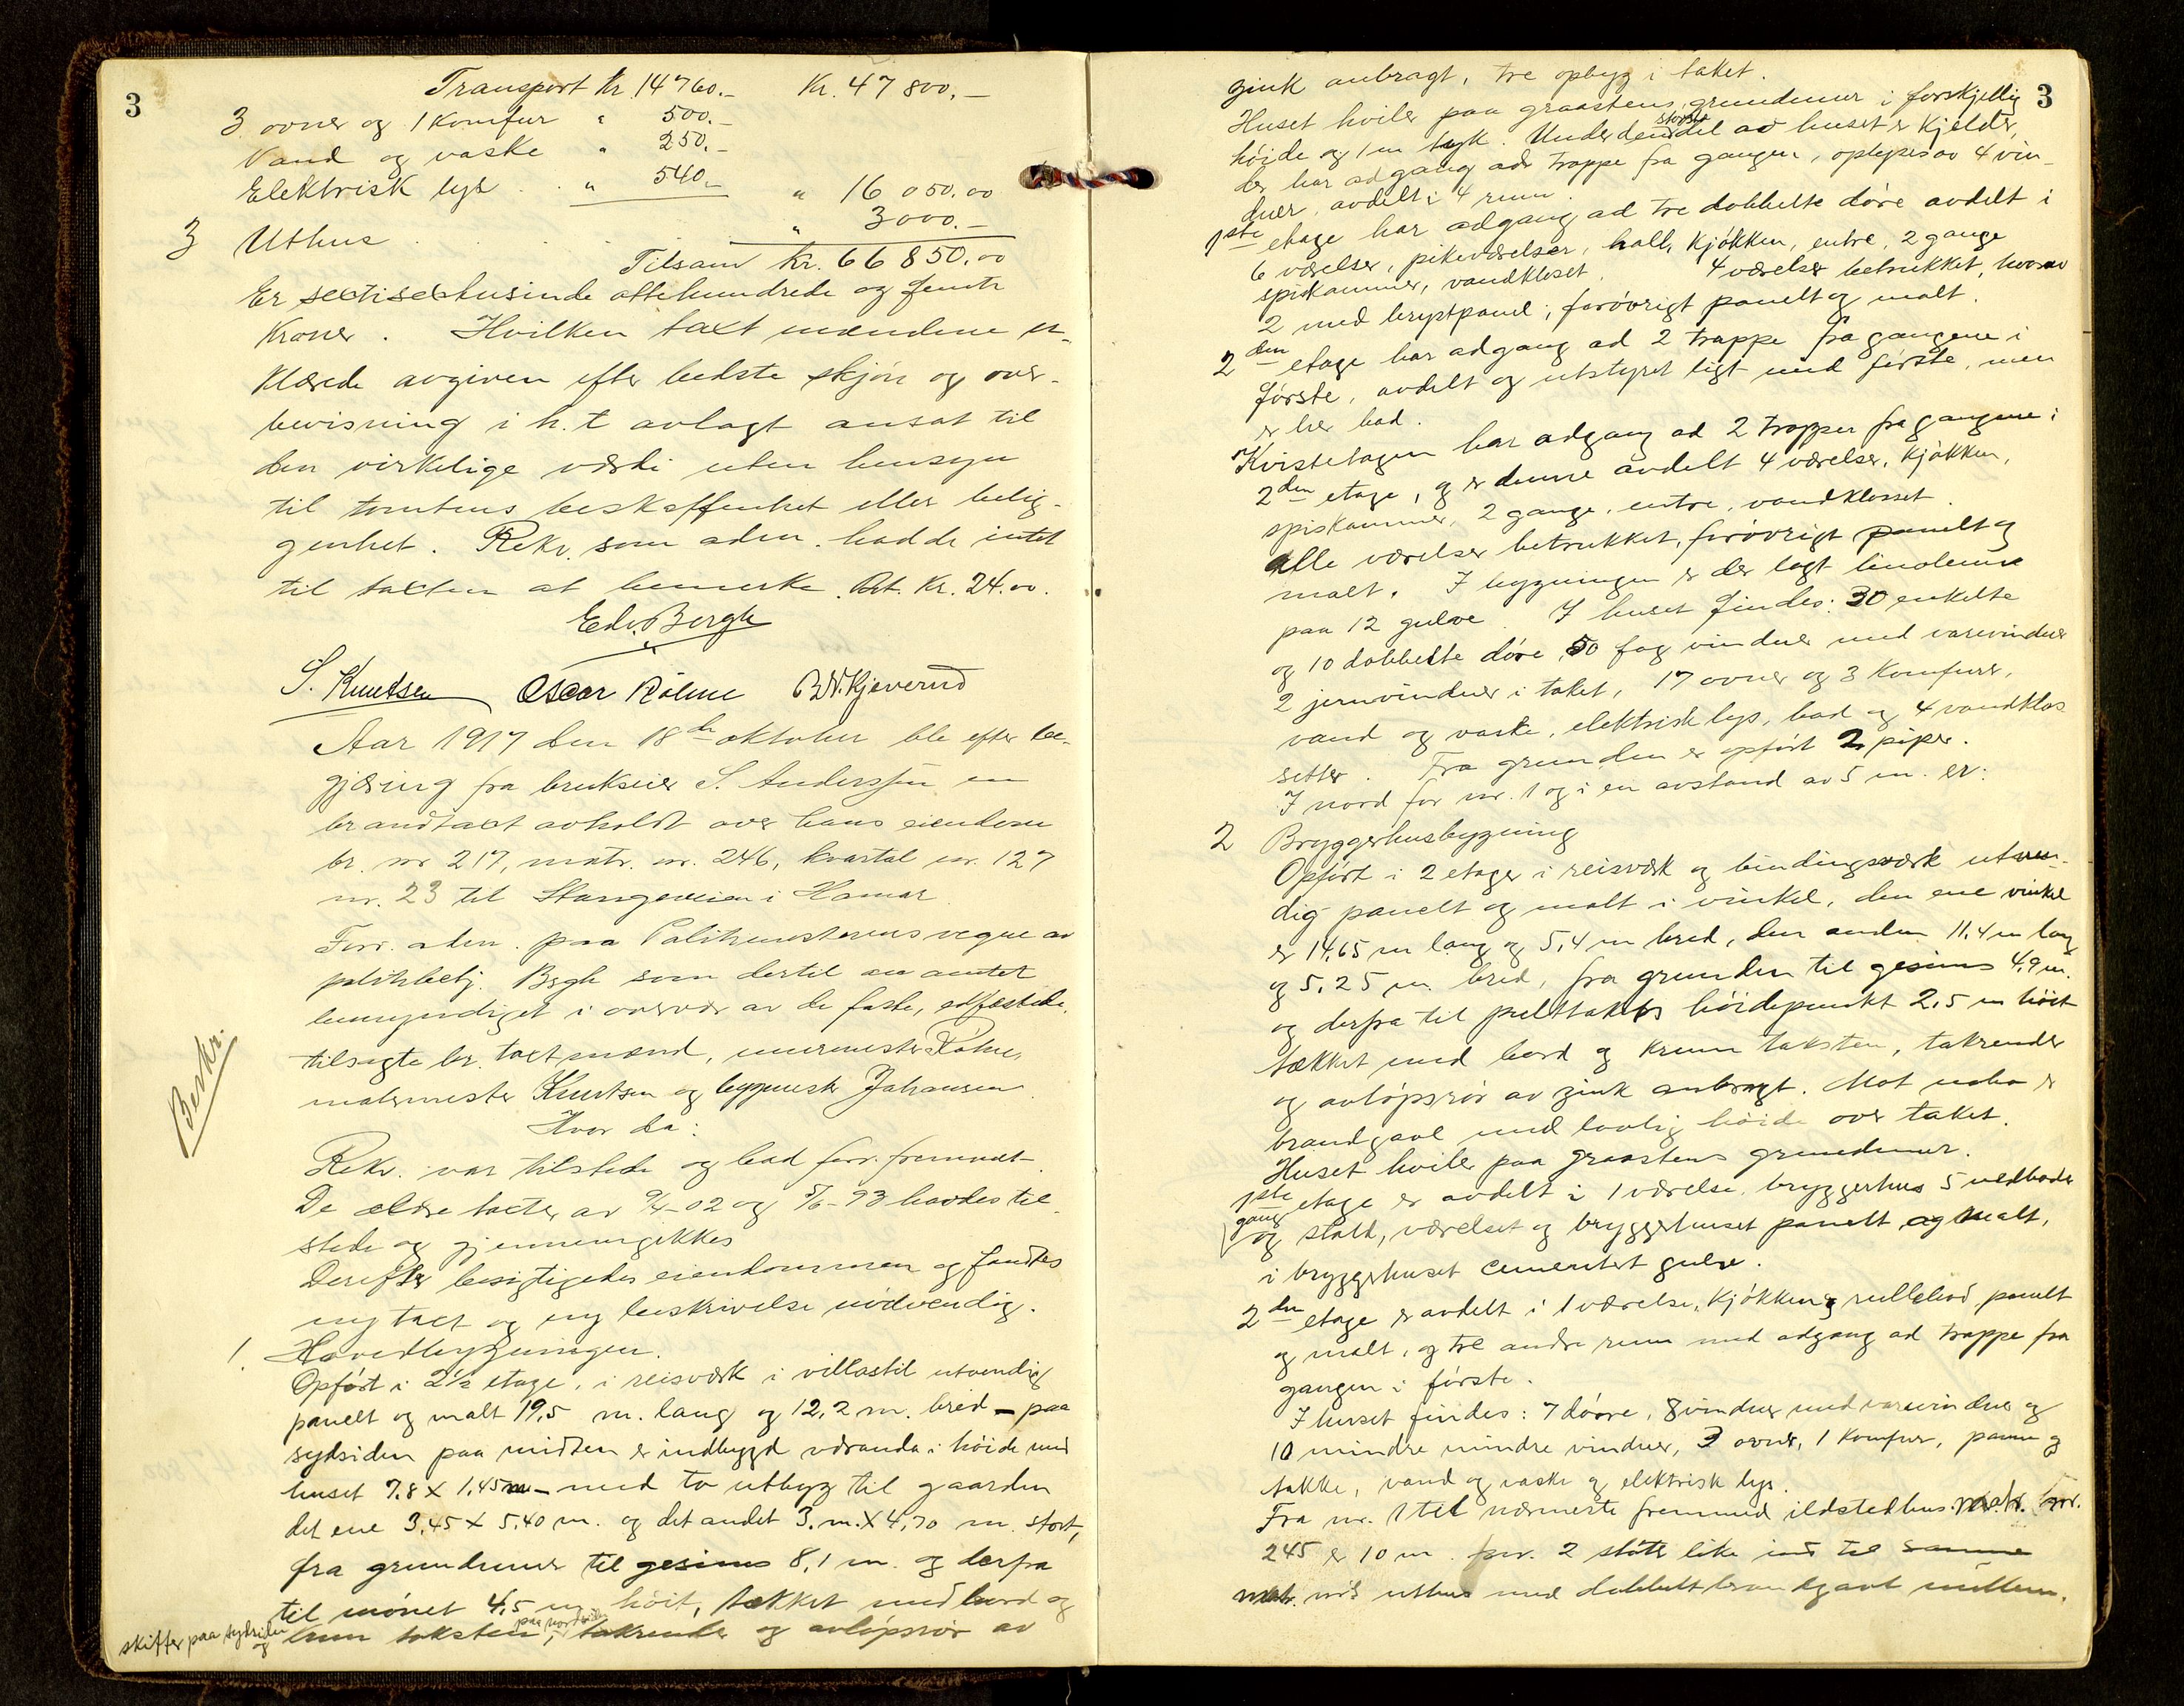 3
Transport Kr. 14760.- Kr. 47800.-
3 ovner og 1 Komfur " 500.-
Vand og vaske " 250.-
Elektrisk lys . . " 540.- " 16 050.00
3 Uthus . . . . . " 3000.-
Tilsam Kr. 66850.00
Er sextisextusinde ottehundrede og femti
Kroner. Hvilken taxt mændene er-
klærede avgiven efter bedste skjøn og over-
bevisning i h.t avlagt ansat til
den virkelige værdi uten hensyn
til tomtens beskaffenhet eller belig-
genhet. Rekv. som aden. hadde intet
til taxten at bemerke. Art. Kr. 24.00.
Edv. Bergh
S. Knutsen Oscar Røhne B.N. Kjeverud
Aar 1917 den 18de oktober ble efter be-
gjæring fra brukseier S. Anderssen en
brandtaxt avholdt over hans eiendom
br. nr 217, matr. nr. 246, kvartal nr. 127
nr. 23 til Stangeveien i Hamar.
Forr. aden. paa Politimesterens vegne av
politibetj. Bergh som dertil av amtet
bemyndiget i overvær av de faste, edfæstede,
tilsagte br. taxtmænd, murmester Røhne,
malermester Knutsen og byggmester Johansen.
Hvor da:
Rekv. var tilstede og bad forr. fremmet.
De ældre taxter av 9/4-02 og 5/6-93 havdes til-
stede og gjennemgikkes
Derefter besigtigedes eiendommen og fandtes
ny taxt og ny beskrivelse nødvendig.
Beskr.
1. Hovedbygningen.
Opført i 2 1/2 etage, i reisværk i villastil utvendig
panelt og malt 19,5 m. lang og 12,2 m. bred - paa
sydsiden paa midten er indbygd væranda i høide med
huset 7.8 x 1,45 m - med to utbyg til gaarden
det ene 3,45 x 5,40 m. og det andet 3. m. x 4,70 m. stort,
fra grundmur til gesims 8,1 m. og derfra
til mønet 4,5 m høit, tækket med bord og
skiffer paa sydsiden og krum taksten paa nordsiden, takrender og avløpsrør av
3
zink anbragt, tre opbyg i taket.
Huset hviler paa graastens grundmur i forskjellig
høide og 1 m tyk. Under den største del av huset er Kjelder,
der har adgang ad trappe fra gangen, oplyses av 4 vin-
duer, avdelt i 4 rum.
1ste etage har adgang ad tre dobbelte døre avdelt i
6 værelser, pikeværelser, hall, Kjøkken, entre, 2 gange
spiskammer, vandkloset. 4 værelser betrukket, hvorav
2 med brystpanel; forøvrigt panelt og malt.
2den etage har adgang ad 2 trappe fra gangene i
første, avdelt og utstyret ligt med første, men
er her bad.
Kvistetagen har adgang ad 2 trapper fra gangene i
2den etage, og er denne avdelt 4 værelser, Kjøkken,
spiskammer, 2 gange, entre, vandkloset.
alle værelser betrukket, forøvrigt panelt og
malt. I bygningen er der lagt linoleum
paa 12 gulve. I huset findes: 30 enkelte
og 10 dobbelte døre, 50 fag vinduer med varevinduer
2 jernvinduer i taket, 17 ovner og 3 Komfurer,
vand og vaske, elektrisk lys, bad og 4 vandklos
setter. Fra grunden er opført 2 piper.
I nord for nr. 1 og i en avstand av 5 m. er:
2 Bryggerhusbygning
Opført i 2 etager i reisværk og bindingsværk utven-
dig panelt og malt i vinkel, den ene vinkel
er 14,65 m lang og 5,4 m bred, den anden 11,4 m lang
og 5,25 m bred, fra grunden til gesims 4,9 m.
og derfra til pulttakets høidepunkt 2,5 m høit
tækket med bord og krum taksten, takrender
og avløpsrør av zink anbragt. Mot nabo er
brandgavl med lovlig høide over taket.
Huset hviler paa graastens grundmur.
1ste etage er avdelt i 1 værelse, bryggerhus 5 vedboder
gang og stald, værelset og bryggerhuset panelt og malt,
i bryggerhuset cementert gulv.
2den etage er avdelt i 1 værelse, Kjøkken og rullebod panelt
og malt, og tre andre rum med adgang ad trappe fra
gangen i første.
I huset findes: 7 døre, 8 vinduer med varevinduer og
10 mindre mindre vinduer, 3 ovner, 1 Komfur, panne og
takke, vand og vaske og elektrisk lys.
Fra nr. 1 til nærmeste fremmed ildstedhus matr. nr.
245 er 10 m. nr. 2 støter like ind til samme
matr. nr's uthus med dobbelt brandgavl mellem.